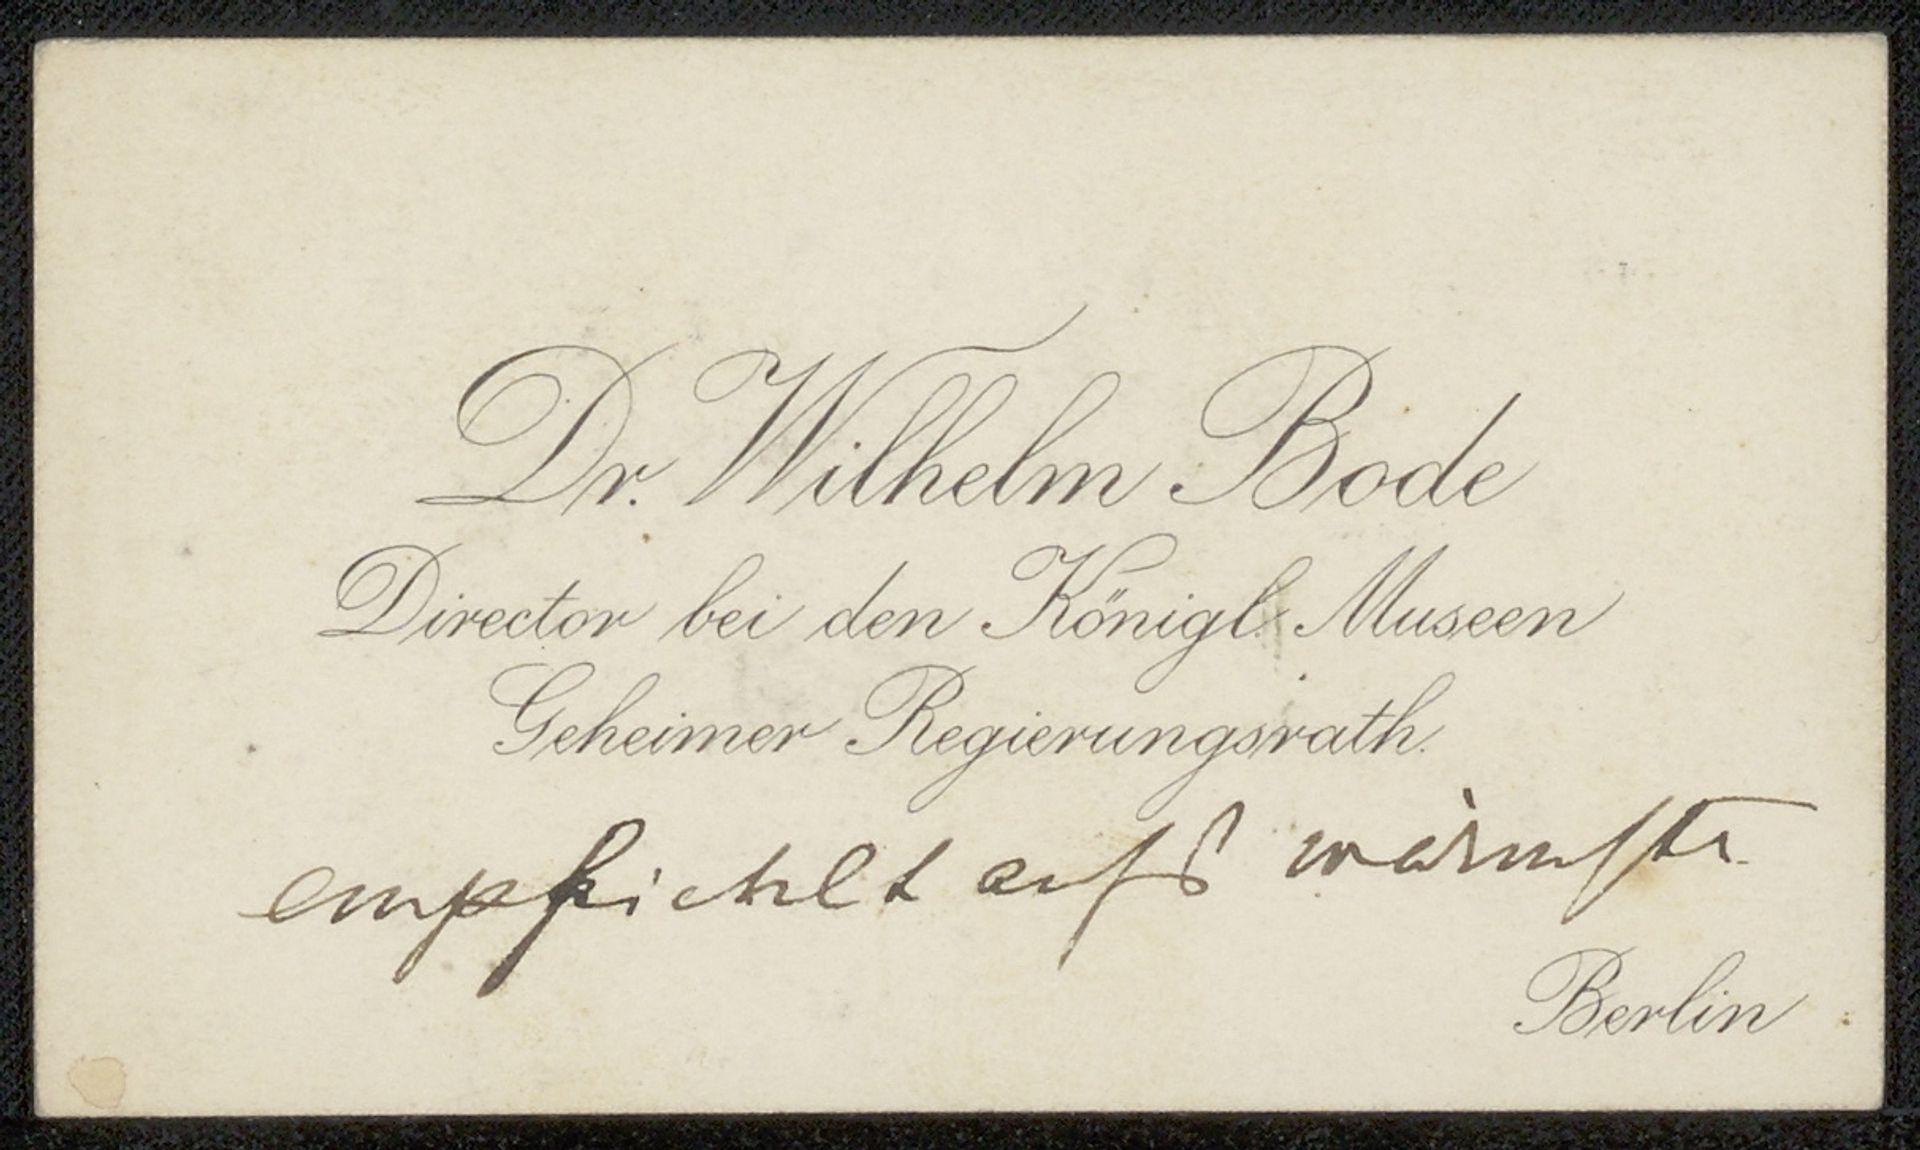 Dr. Wilhelm Bode
Director bei den Königl. Museen
Geheimer Regierungsrath.
empfiehlt aufs wärmste
Berlin